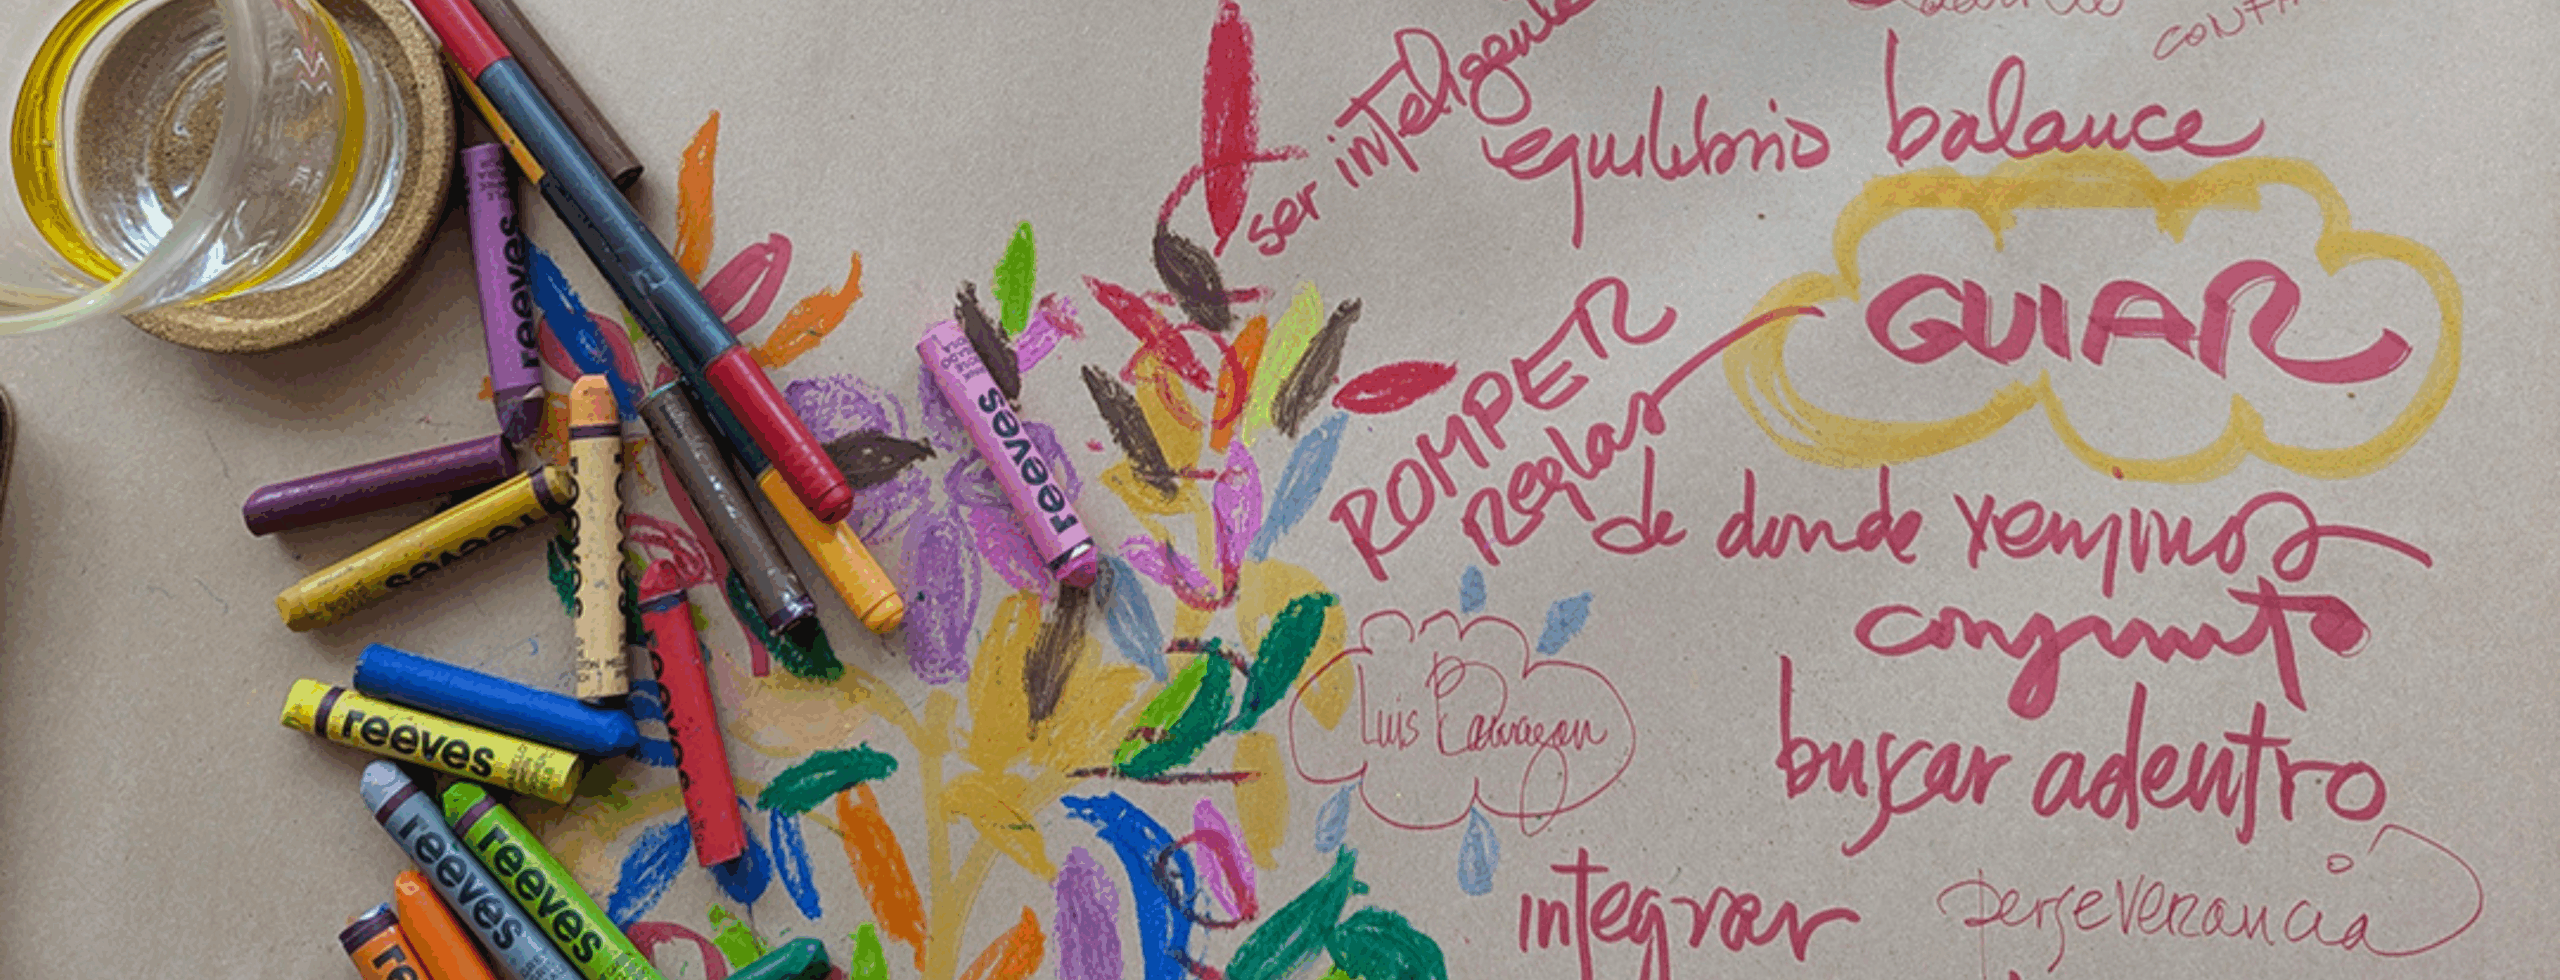 ser inteligente
equilibrio balance
GUIAR
ROMPER
Reglas
de donde venimos
conjunto
Luis Barragan
buscar adentro
integrar
perseverancia
reeves
reeves
reeves
reeves
reeves
reeves
reeves